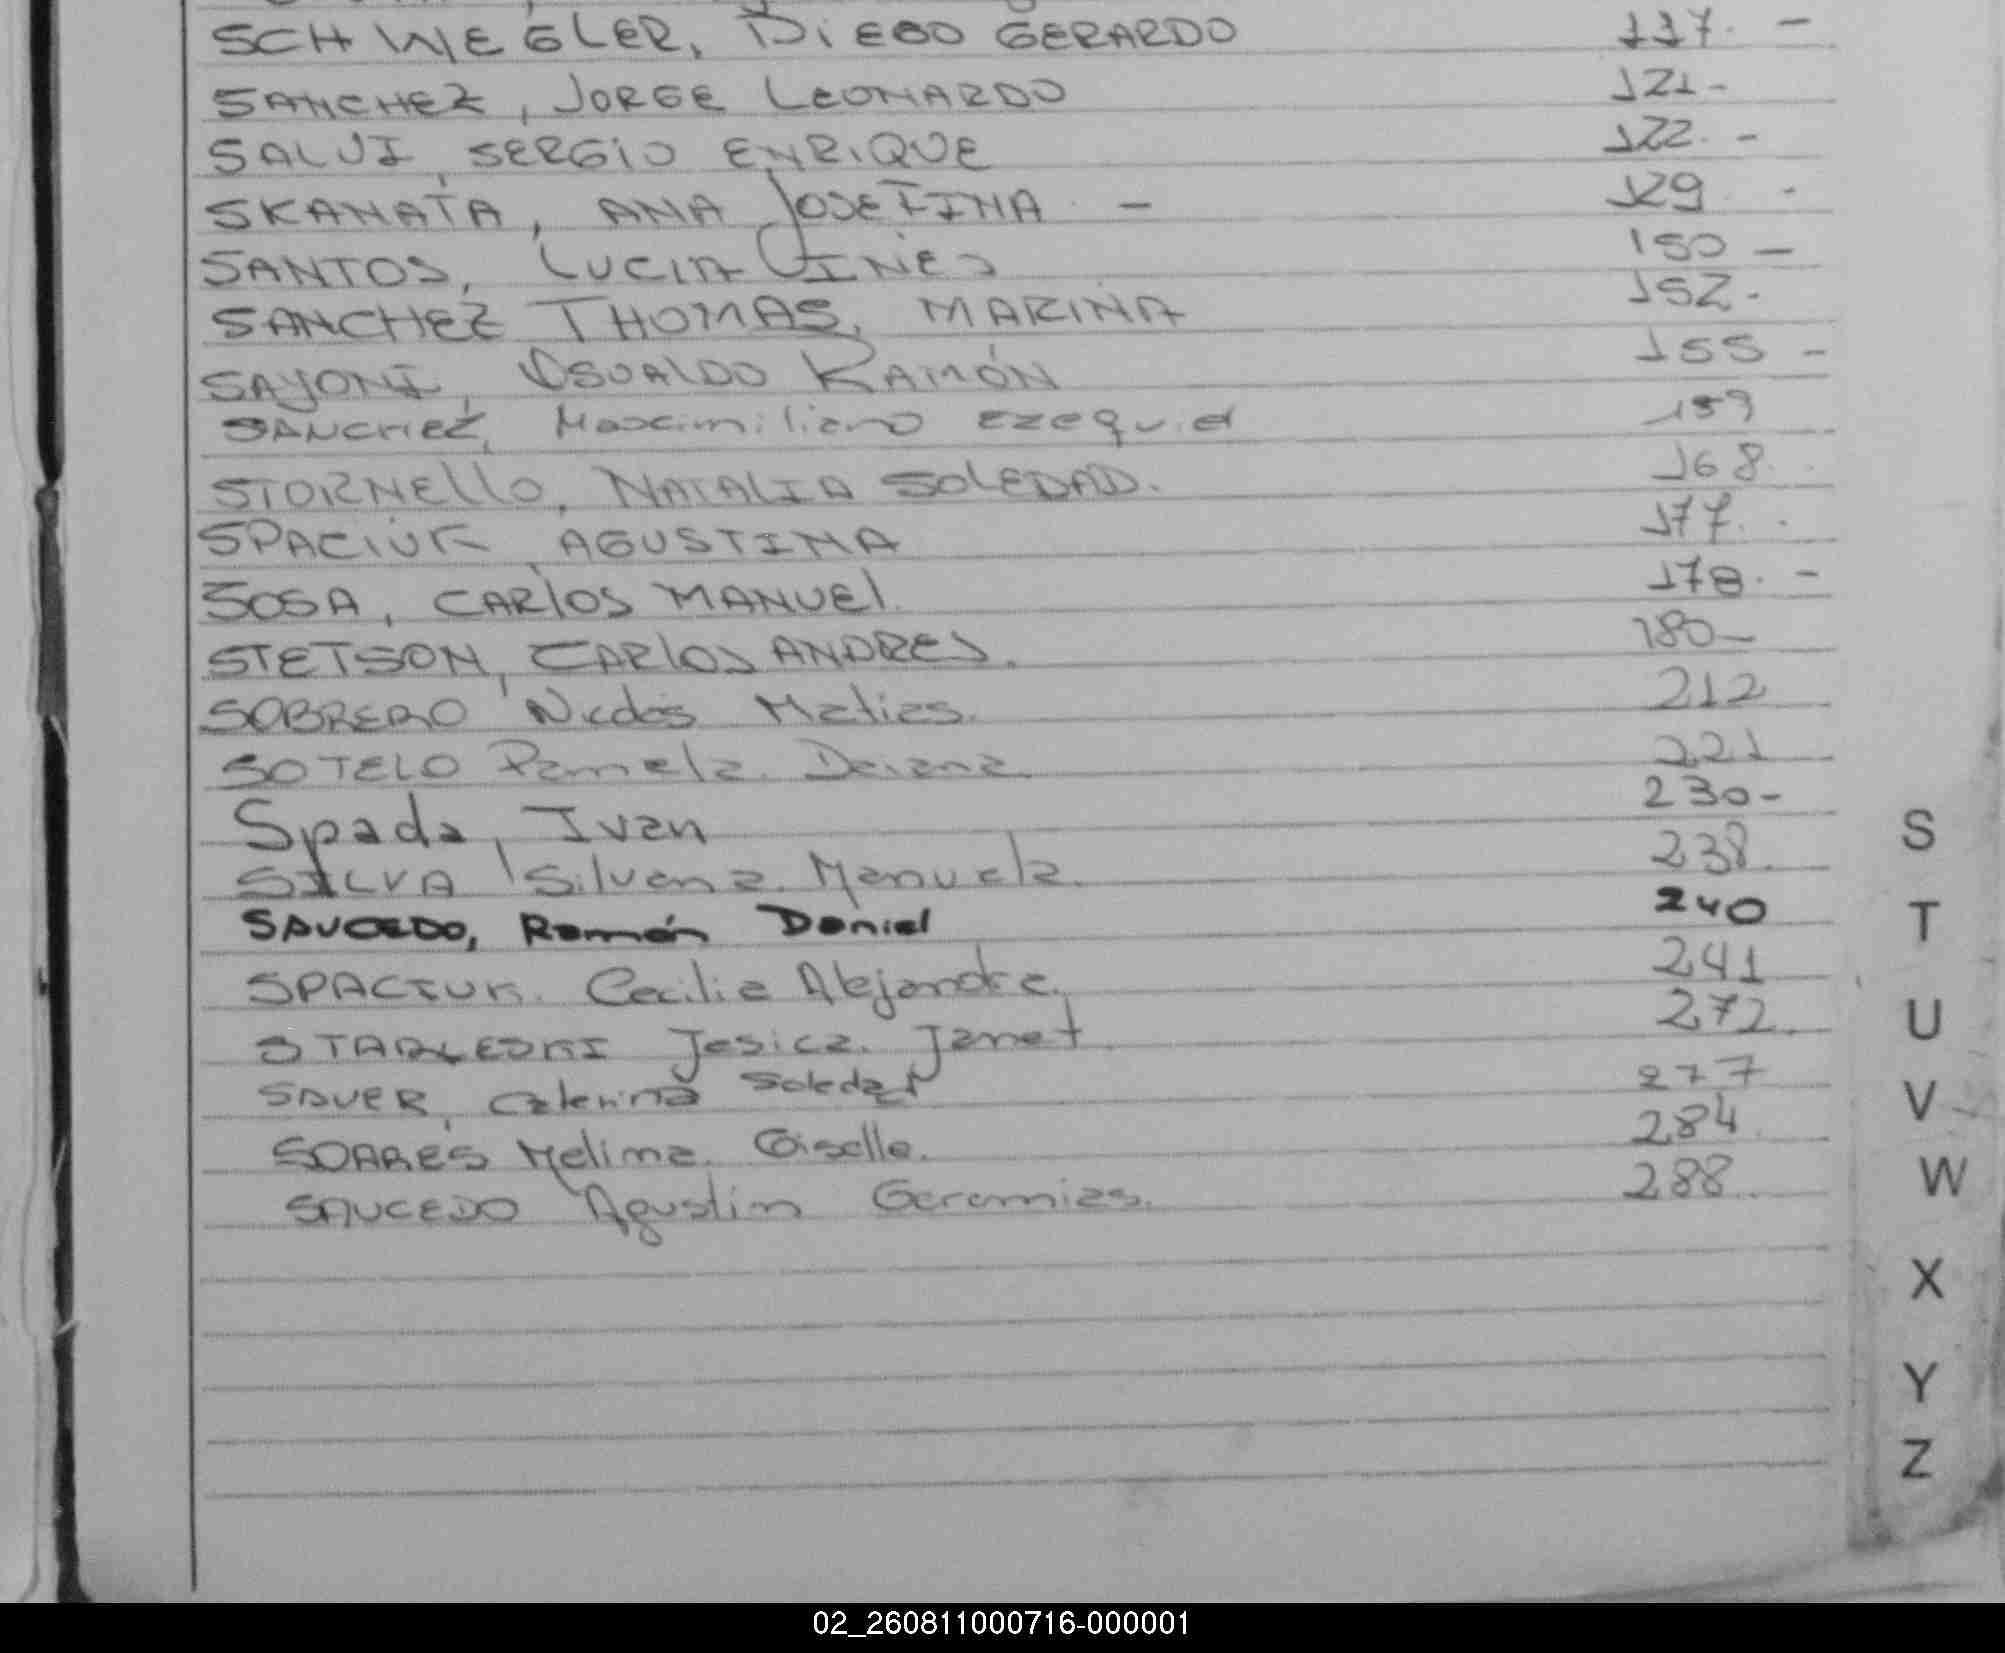 SCHWEGLER, DIEGO GERARDO 117. -
SANCHEZ, JORGE LEONARDO 121-
SALUI, SERGIO ENRIQUE 122. -
SKANATA, ANA JOSEFINA - 129 -
SANTOS, LUCIA INES 150 -
SANCHEZ THOMAS, MARINA 152-
SAYONI, OSVALDO RAMÓN 155 -
SANCHEZ, Maximiliano Ezequiel 159
STORNELLO, NATALIA SOLEDAD. 168
SPACIUK AGUSTINA 177.
SOSA, CARLOS MANUEL 178. -
STETSON, CARLOS ANDRES. 180-
SOBRERO Nicolás Matias. 212
SOTELO Pamela Daiana 221
Spada, Ivan 230-
SILVA Silvana Manuela. 238.
SAUCEDO, Ramón Daniel 240
SPACIUK. Cecilia Alejandra. 241
Jesica Janet 272.
SAUER, Caterina Soledad 277
SOARES Melina Giselle. 284
SAUCEDO Agustin Geremias. 288
S
T
U
V
W
X
Y
Z
02_260811000716-000001